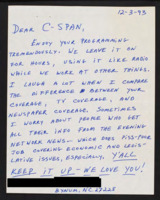 12-3-93
DEAR C-SPAN,
ENJOY YOUR PROGRAMMING
TREMENDOUSLY. WE LEAVE IT ON
FOR HOURS, USING IT LIKE RADIO
WHILE WE WORK AT OTHER THINGS.
I LAUGH A LOT WHEN I COMPARE
THE DIFFERENCE BETWEEN YOUR
COVERAGE, TV COVERAGE, AND
NEWSPAPER COVERAGE. SOMETIMES
I WORRY ABOUT PEOPLE WHO GET
ALL THEIR INFO FROM THE EVENING
NETWORK NEWS - WHICH DOES PISS-POOR
JOB COVERING ECONOMIC AND LEGIS-
LATIVE ISSUES, ESPECIALLY. Y'ALL
KEEP IT UP - WE LOVE YOU!
BYNUM, NC 27228